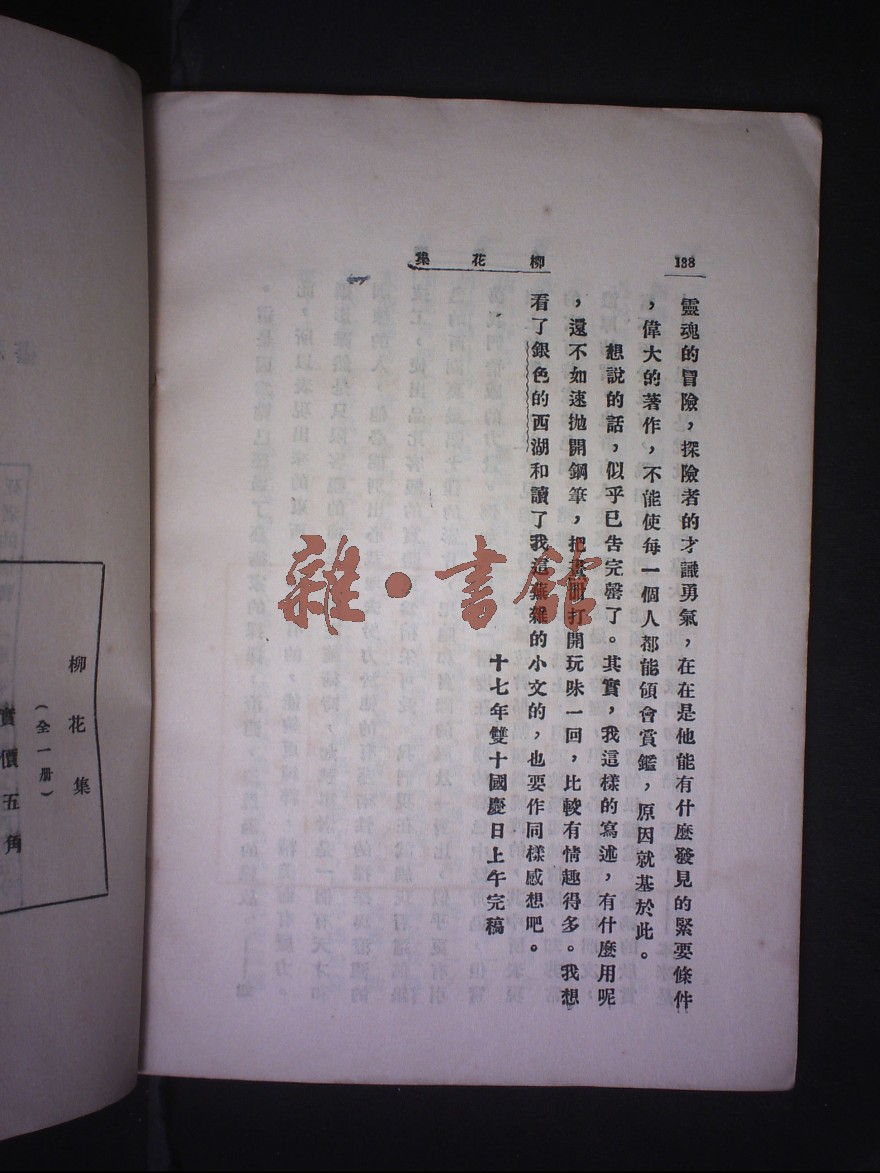 138
柳花集
靈魂的冒險，探險者的才識勇氣，在在是他能有什麼發見的緊要條件
，偉大的著作，不能使每一個人都能領會賞鑑，原因就基於此。
想說的話，似乎已告完罄了。其實，我這樣的寫述，有什麼用呢
，還不如速拋開鋼筆，把畫冊打開玩味一回，比較有情趣得多。我想
看了銀色的西湖和讀了我這蕪雜的小文的，也要作同樣感想吧。
十七年雙十國慶日上午完稿
柳花集
（全一册）
實價五角
雜·書館